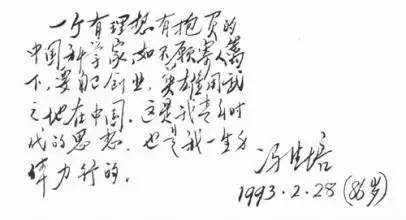 一个有理想有抱负的
中国科学家，如不愿寄人篱
下，要自己创业，英雄用武
之地在中国。这是我青年时
代的思想，也是我一生身
体力行的。
冯德培
1993.2.28（86岁）